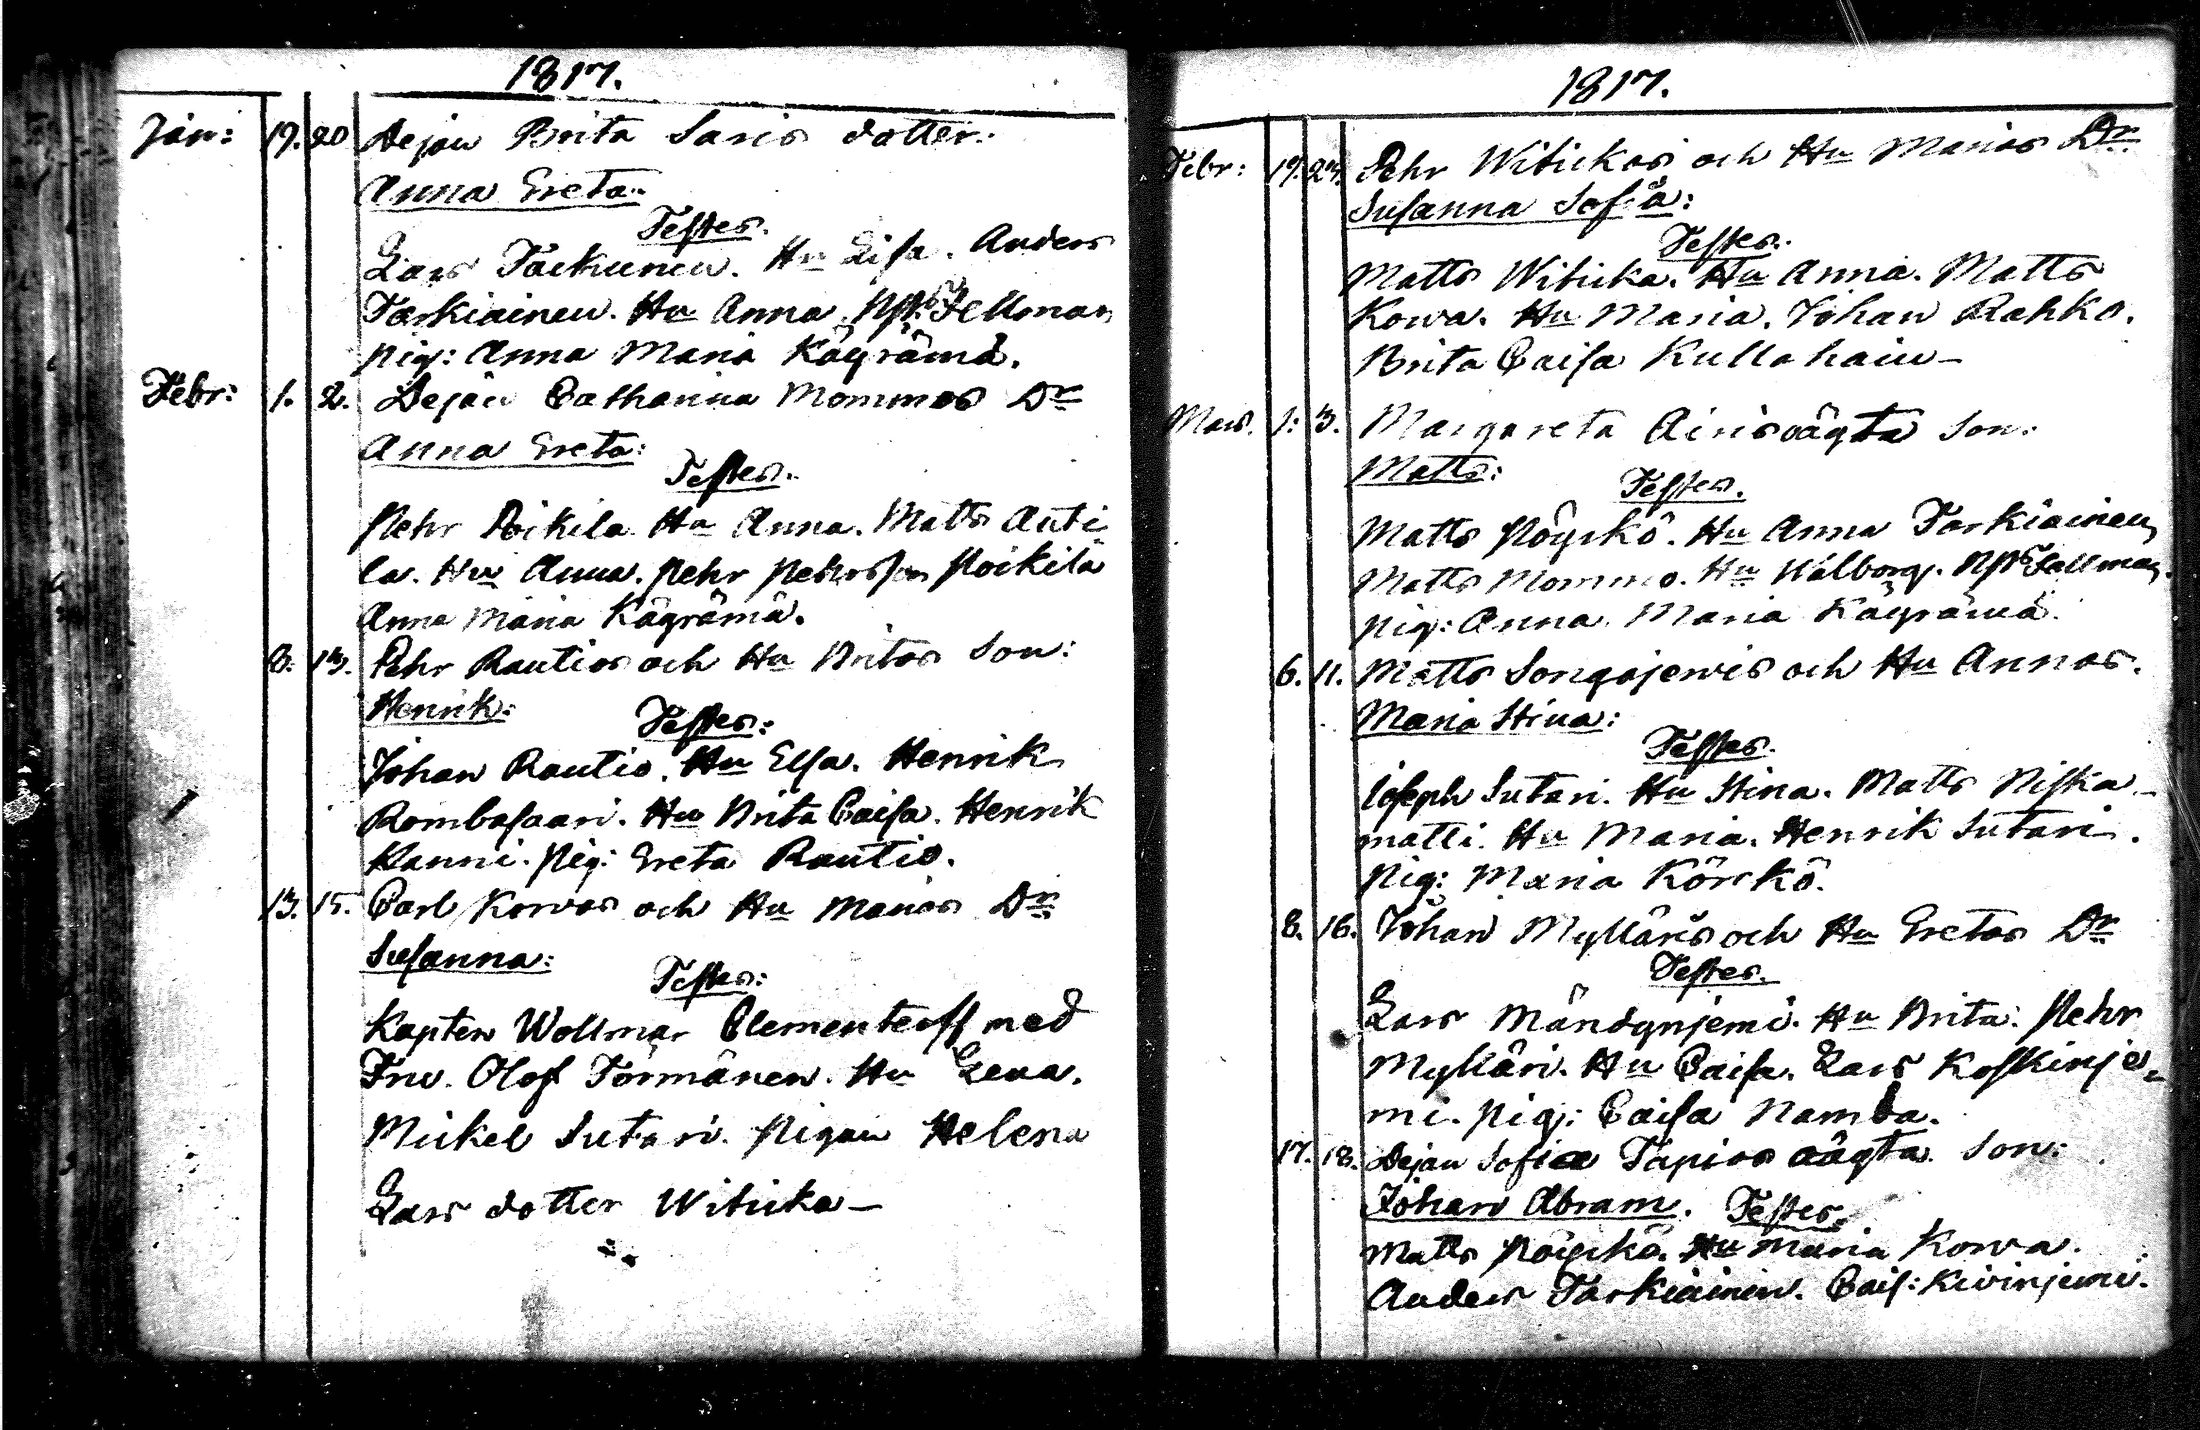 1817.
Jan: 19. 20 Dejan Brita Saris dotter:
Anna Greta:
Testes.
Lars Tackunen. Hu Lisa. Anders
Tarkiainen. Hu Anna. Fellman
pig: Anna Maria Kägrämä.
Febr: 1. 2. Dejan Catharina Mommos Dr
Anna Greta:
Testes.
Pehr Poikila Hu Anna. Matts Anti
la. Hu Anna. Pehr Pehrsson Poikila
Anna Maria Kägrämä.
8. 13. Pehr Rautios och Hu Britas Son:
Henrik:
Testes:
Johan Rautio. Hu Elsa. Henrik
Rombasaari. Hu Brita Caisa. Henrik
Kanni. Pig: Greta Rautio.
13. 15. Carl Korvas och Hu Marias Dr
Susanna:
Testes:
Kapten Wollmar Clementeoff med
Fru. Olof Törmänen. Hu Lena.
Mickel Sutari. Pigan Helena
Lars dotter Witicka—
1817.
Febr: 17. 23. Pehr Witickas och Hu Marias Dr
Susanna Sofia:
Testes.
Matts Witicka. Hu Anna. Matts
Kowa. Hu Maria. Johan Rahko.
Brita Caisa Kullahain—
Mars. 1: 3. Margareta Airis oägta Son:
Matts:
Testes.
Matts Pöyskö. Hu Anna Tarkiainen
Matts Mommo. Hu Walborg. Fellman.
pig: Anna Maria Kägrämä.
6. 11. Matts Songajerwis och Hu Annas.
Maria Stina:
Testes.
Joseph Sutari. Hu Stina. Matts Niska-
matti. Hu Maria. Henrik Sutari.
Pig: Maria Körckö.
8. 16. Johan Mylläris och Hu Gretas Dr
Testes.
Lars Mändynjemi. Hu Brita. Pehr
Mylläri. Hu Caisa. Lars Koskinje-
mi. Pig: Caisa Namba.
17. 18. Dejan Sofia Tapios oägta Son:
Johan Abram. Testes.
Matts Pöyskö. Hu Maria Korva.
Anders Tarkiainin. Cais: Kivinjemi.